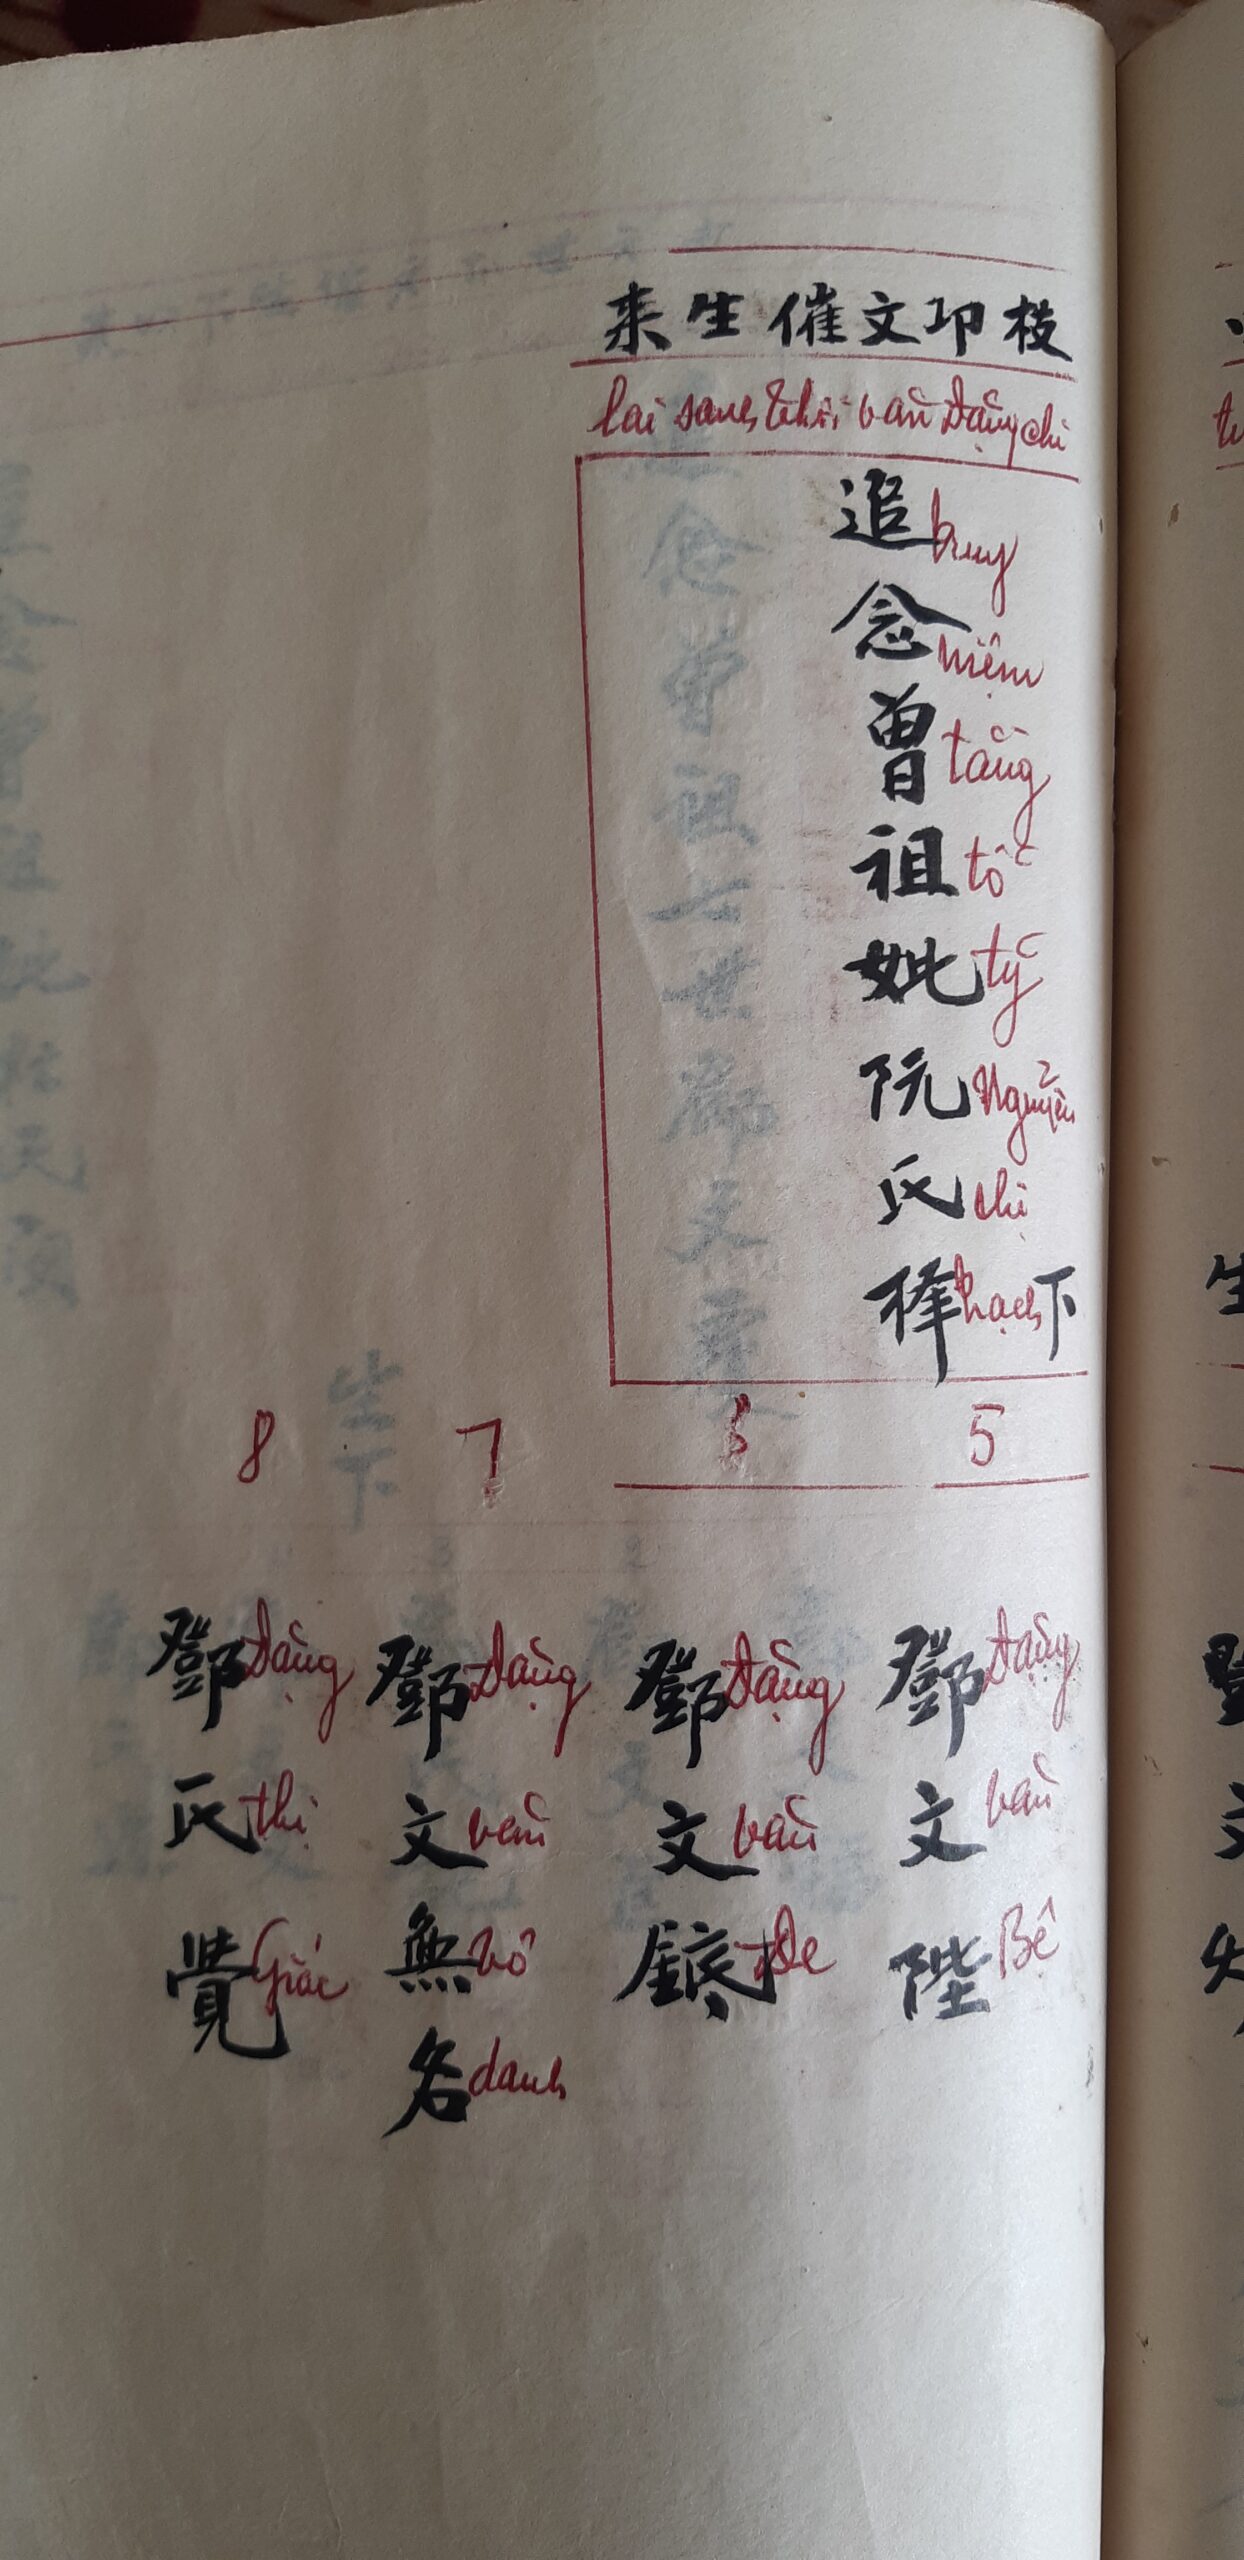 来生催文卬枝
lai sanh thôi văn Đặng chi
追念曾祖妣阮氏
truy niệm tằng tổ tỷ Nguyễn thị hạch
下
5
6
7
8
鄧文陛
Đặng văn Bê
鄧文
Đặng văn Đe
鄧文無名
Đặng văn vô danh
鄧氏覺
Đặng thị Giác
生下